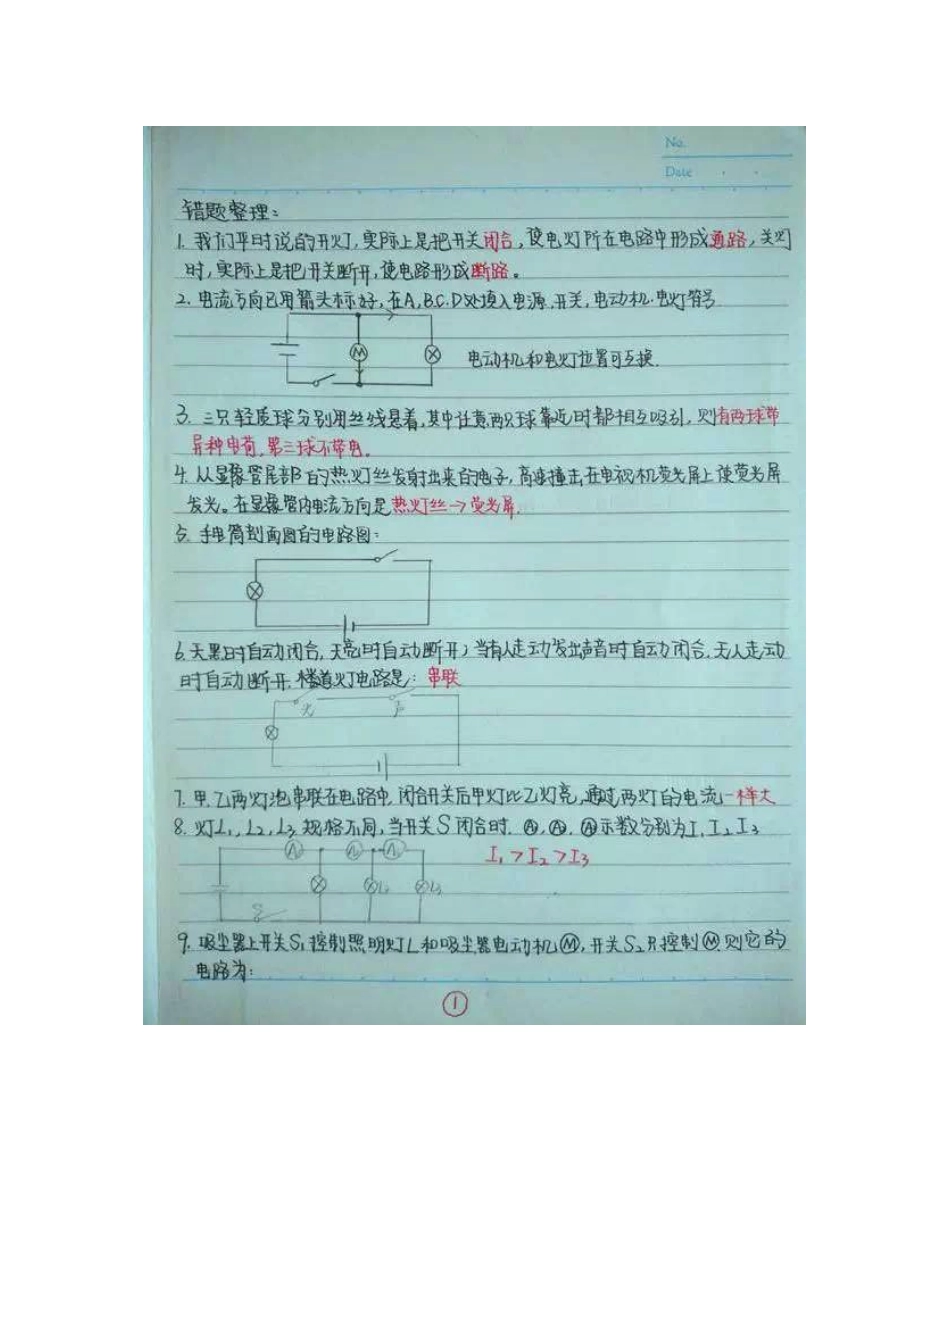 No.
Date
错题整理：
1. 我们平时说的开灯，实际上是把开关闭合，使电灯所在电路中形成通路，关灯
时，实际上是把开关断开，使电路形成断路。
2. 电流方向已用箭头标好，在A、B、C、D处填入电源、开关，电动机、电灯符号
M
电动机和电灯位置可互换.
3. 三只轻质球分别用丝线悬着，其中任意两只球靠近时都相互吸引，则有两球带
异种电荷，第三球不带电。
4. 从显像管尾部的热灯丝发射出来的电子，高速撞击在电视机荧光屏上使荧光屏
发光。在显像管内电流方向是热灯丝→荧光屏.
5. 手电筒剖面图的电路图：
6. 天黑时自动闭合，天亮时自动断开；当有人走动发出声音时自动闭合，无人走动
时自动断开. 楼道灯电路是：串联
光 声
7. 甲、乙两灯泡串联在电路中，闭合开关后甲灯比乙灯亮，通过两灯的电流一样大
8. 灯L₁，L₂，L₃ 规格不同，当开关S闭合时. A₁、A₂、A₃示数分别为I₁ I₂ I₃
I₁＞I₂＞I₃
L₂ L₃
S
9. 吸尘器上开关S₁控制照明灯L和吸尘器电动机Ⓜ，开关S₂只控制Ⓜ则它的
电路为：
①